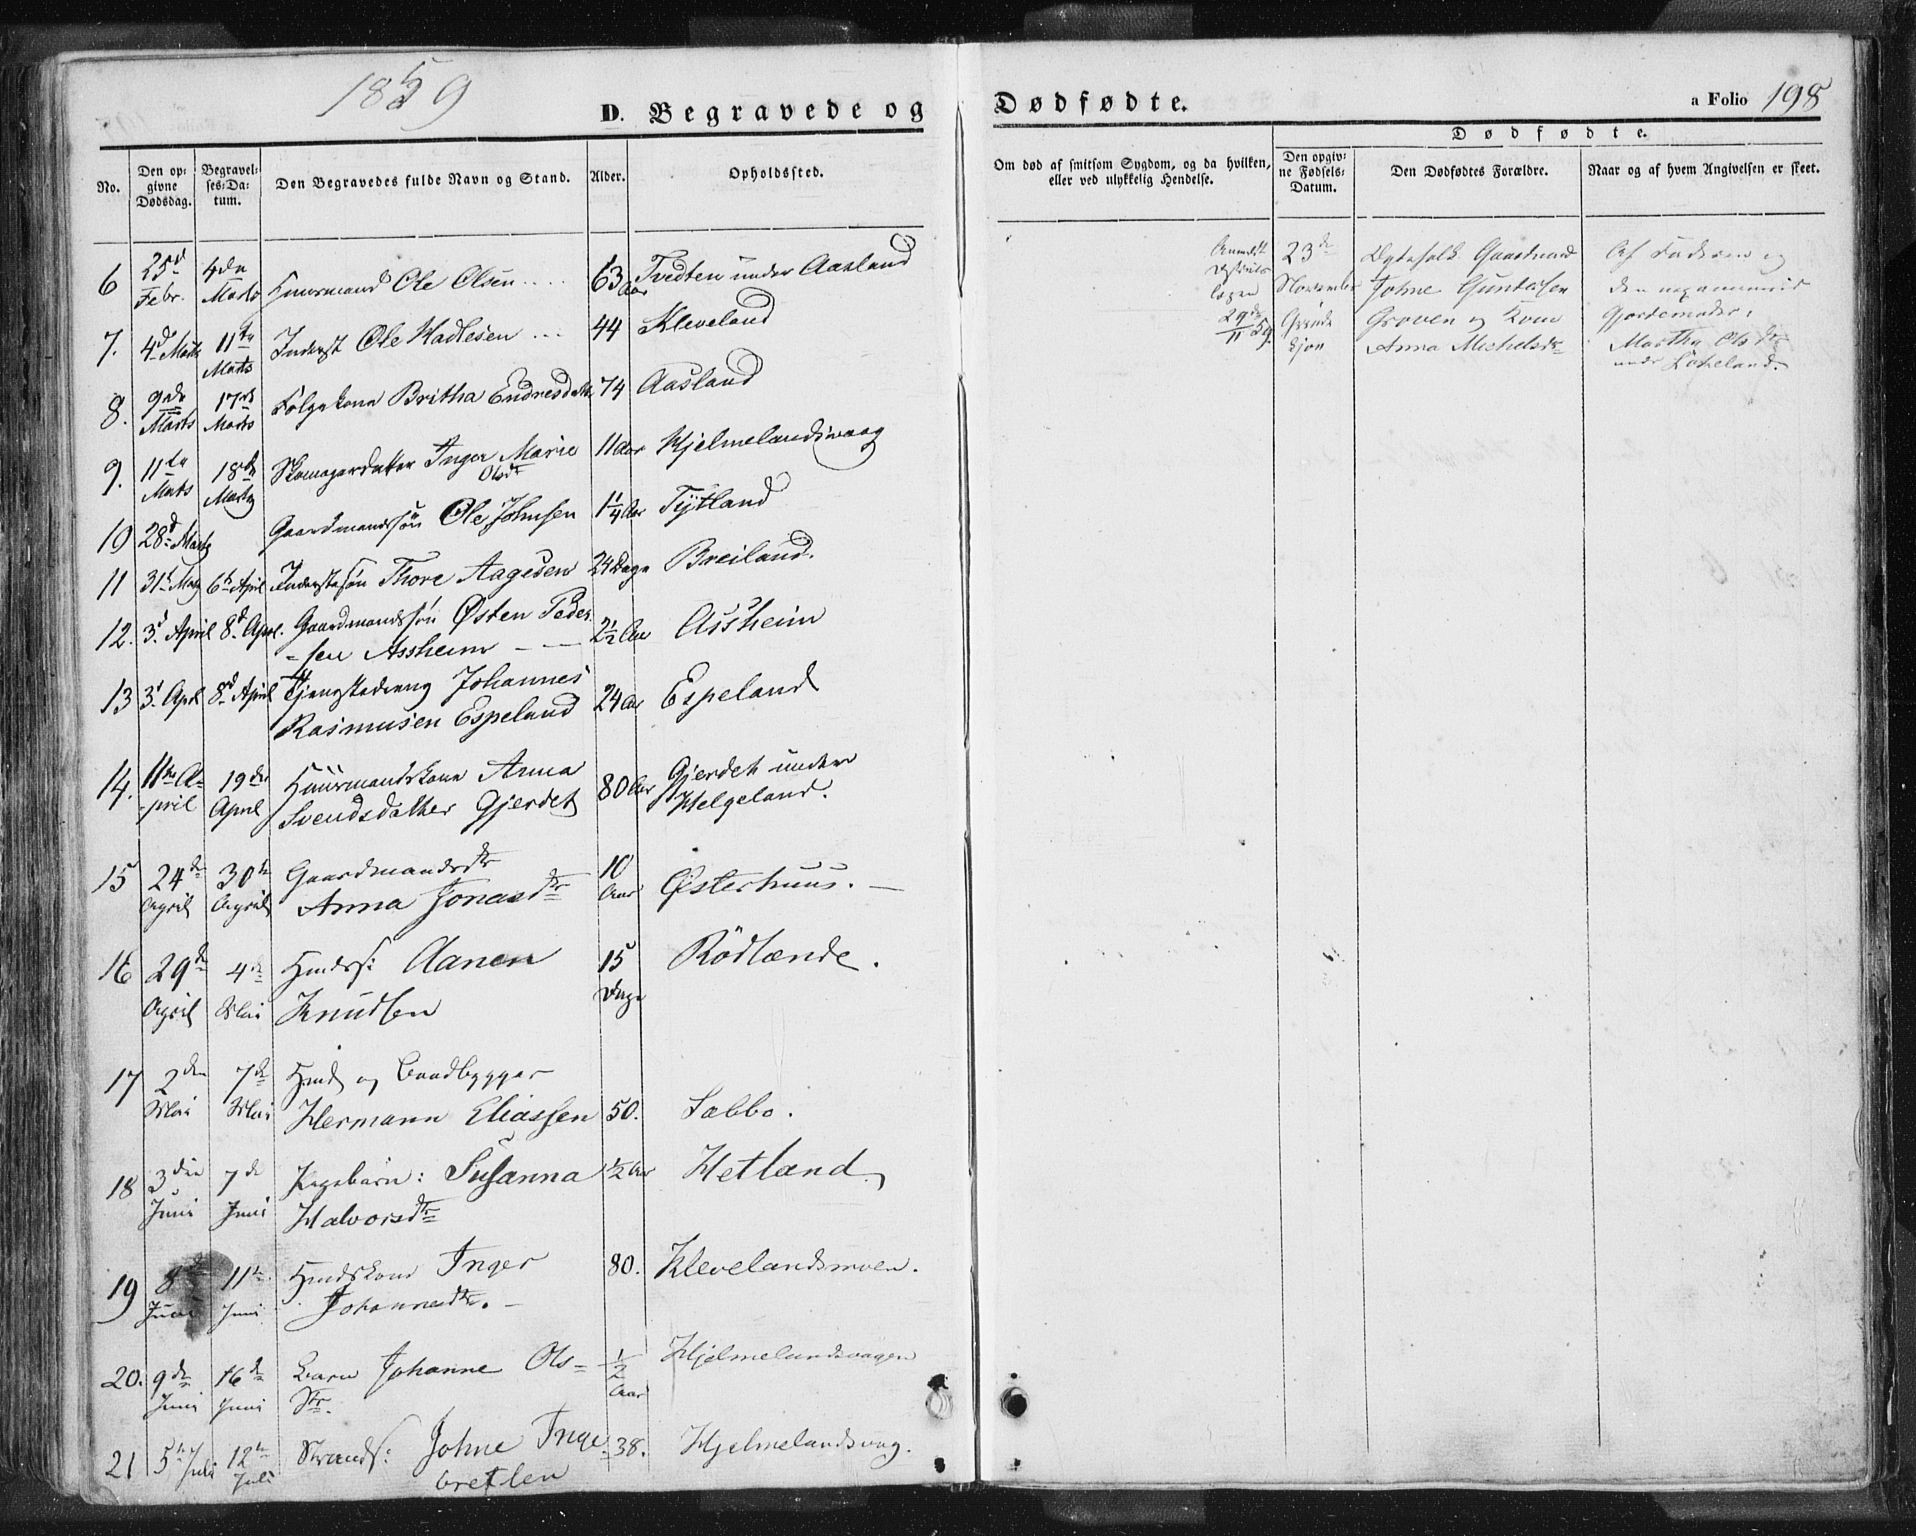 1859
D. Begravede og
No.
Den opgivne Dødsdag.
Begravelses-Datum.
Den Begravedes fulde Navn og Stand.
Alder.
Opholdssted.
6 25d Febr. 4de Marts Huusmand Ole Olsen .... 63 Aar Tvedten under Aasland
7. 4de Marts 11te Marts Inderst Ole Hadlesen ... 44 Kleveland
8. 9de Marts 17de Marts Følgekone Britha Endresdatter 74 Aasland
9. 11te Marts 18de Marts Skomagerdatter Inger Marie 11 Aar Hjelmelandsvaag
Olsdr
10 28de Marts Gaardmandssøn Ole Johnsen 1 1/4 Aar Tytland
11 31te Marts 6te April Inderstesøn Thore Aagesen 24 Dage Breiland.
12. 3d April 8d April. Gaardmandssøn Østen Peder 2 1/2 Aar Assheim
-sen Assheim - -
13 3d April 8d April Tjenstedreng Johannes 24 Aar Espeland
Rasmusen Espeland
14. 11te A- 19de Huusmandskone Anna 80 Aar Gjerdet under
-pril April Svendsdatter Gjerdet Helgeland.
15 24de 30te Gaardmandsdtr 10 Østerhuus. -
April April Anna Jonasdtr Aar
16 29de 4de Hmdss: Aanen 15 Rödlænde.
April Mai Knudsen Dage
17 2den 7de Hmd og Baadbygger
Mai Mai Hermann Eliassen 50. Sæbbø.
18 3die 7de Pigebarn: Susanna 1/2 Aar Hetland
Juni Juni Halvorsdtr
19 8de 11te Hmdskone Inger 80. Klevelandsmoen.
Juni Juni Johannesdtr. -
20. 9de 16de Barn Johanne Ols= 1/2 Hjelmelandsvaagen
Juni Juni dtr. Aar
21 5te Juli 12te Strands: Johne Inge 38. Hjelmelandsvaag.
Juli bretsen
Dødfødte.
a Folio 198
Om død af smitsom Sygdom, og da hvilken,
eller ved ulykkelig Hendelse.
Dødfødte.
Den opgivne Fødsels-Datum.
Den Dødfødtes Forældre.
Naar og af hvem Angivelsen er skeet.
Anmeldt 23de Ægtefolk Gaardmand Af Faderen og
November Johne Guntersen den
29de/11 59. Groven og Kone Gjordemoder,
Anna Michelsdtr Martha Olsdtr